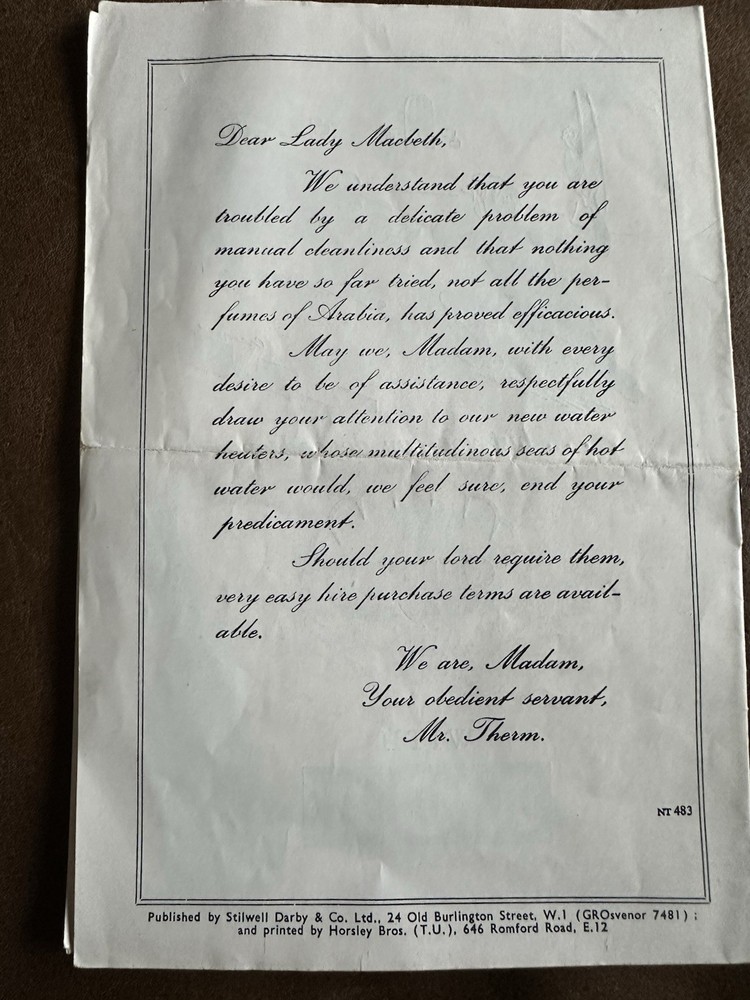 Dear Lady Macbeth,
We understand that you are
troubled by a delicate problem of
manual cleanliness and that nothing
you have so far tried, not all the per-
fumes of Arabia, has proved efficacious.
May we, Madam, with every
desire to be of assistance, respectfully
draw your attention to our new water
heaters, whose multitudinous seas of hot
water would, we feel sure, end your
predicament.
Should your lord require them,
very easy hire purchase terms are avail-
able.
We are, Madam,
Your obedient servant,
Mr. Therm.
NT 483
Published by Stilwell Darby & Co. Ltd., 24 Old Burlington Street, W.1 (GROsvenor 7481) ;
and printed by Horsley Bros. (T.U.), 646 Romford Road, E.12